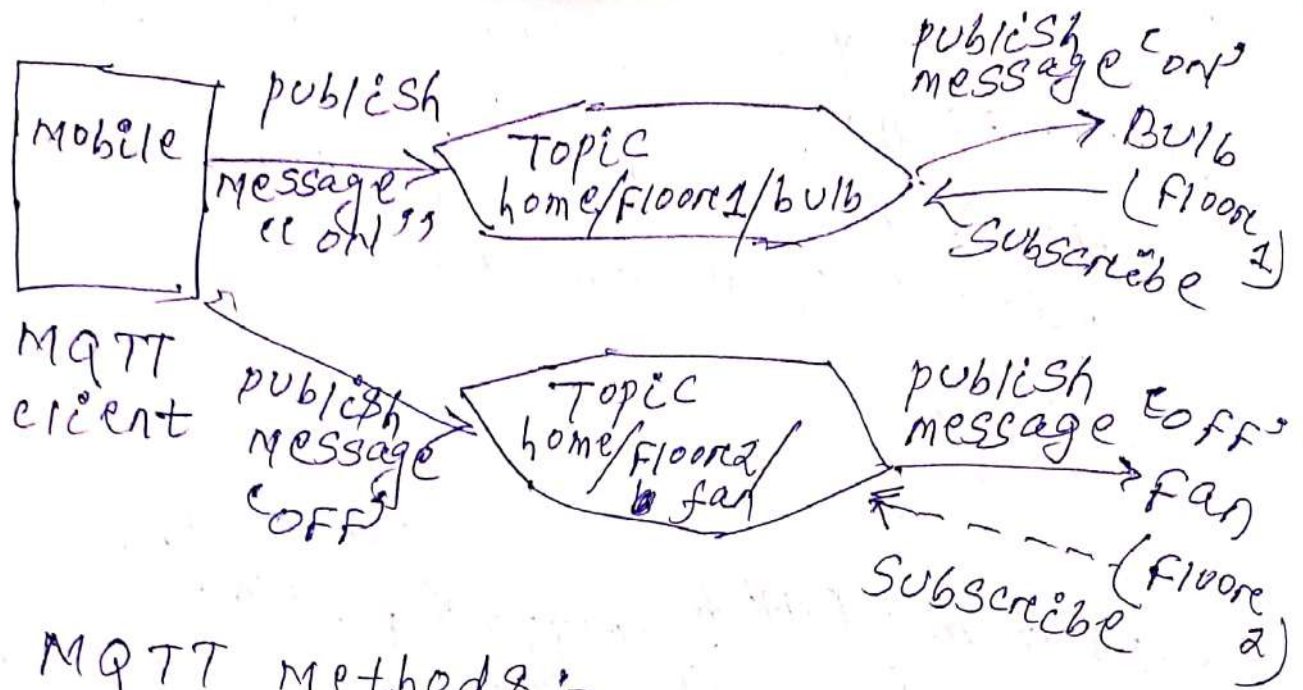 Mobile
MQTT
client
publish
message
"ON"
Topic
home/Floore1/bulb
publish
message "on"
Bulb
(Floore
1)
Subscribe
publish
message
"OFF"
Topic
home/Floore2/
fan
publish
message "OFF"
Fan
(Floore
2)
Subscribe
MQTT Methods:-